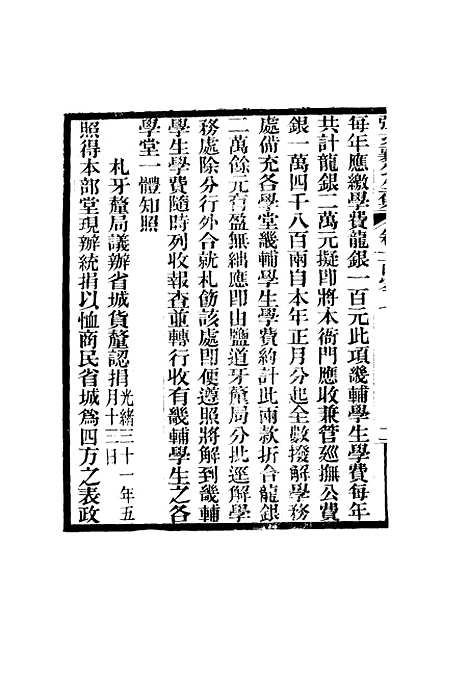 每年應繳學費龍銀一百元此項畿輔學生學費每年
共計龍銀二萬元擬卽將本衙門應收兼管廵撫公費
銀一萬四千八百兩自本年正月分起全數撥解學務
處備充各學堂畿輔學生學費約計此兩款折合龍銀
二萬餘元有盈無絀應卽由鹽道牙釐局分批逕解學
務處除分行外合就札飭該處卽便遵照將解到畿輔
學生學費隨時列收報查並轉行收有畿輔學生之各
學堂一體知照
札牙釐局議辦省城貨釐認捐光緒三十一年五月十三日
照得本部堂現辦統捐以恤商民省城爲四方之表政